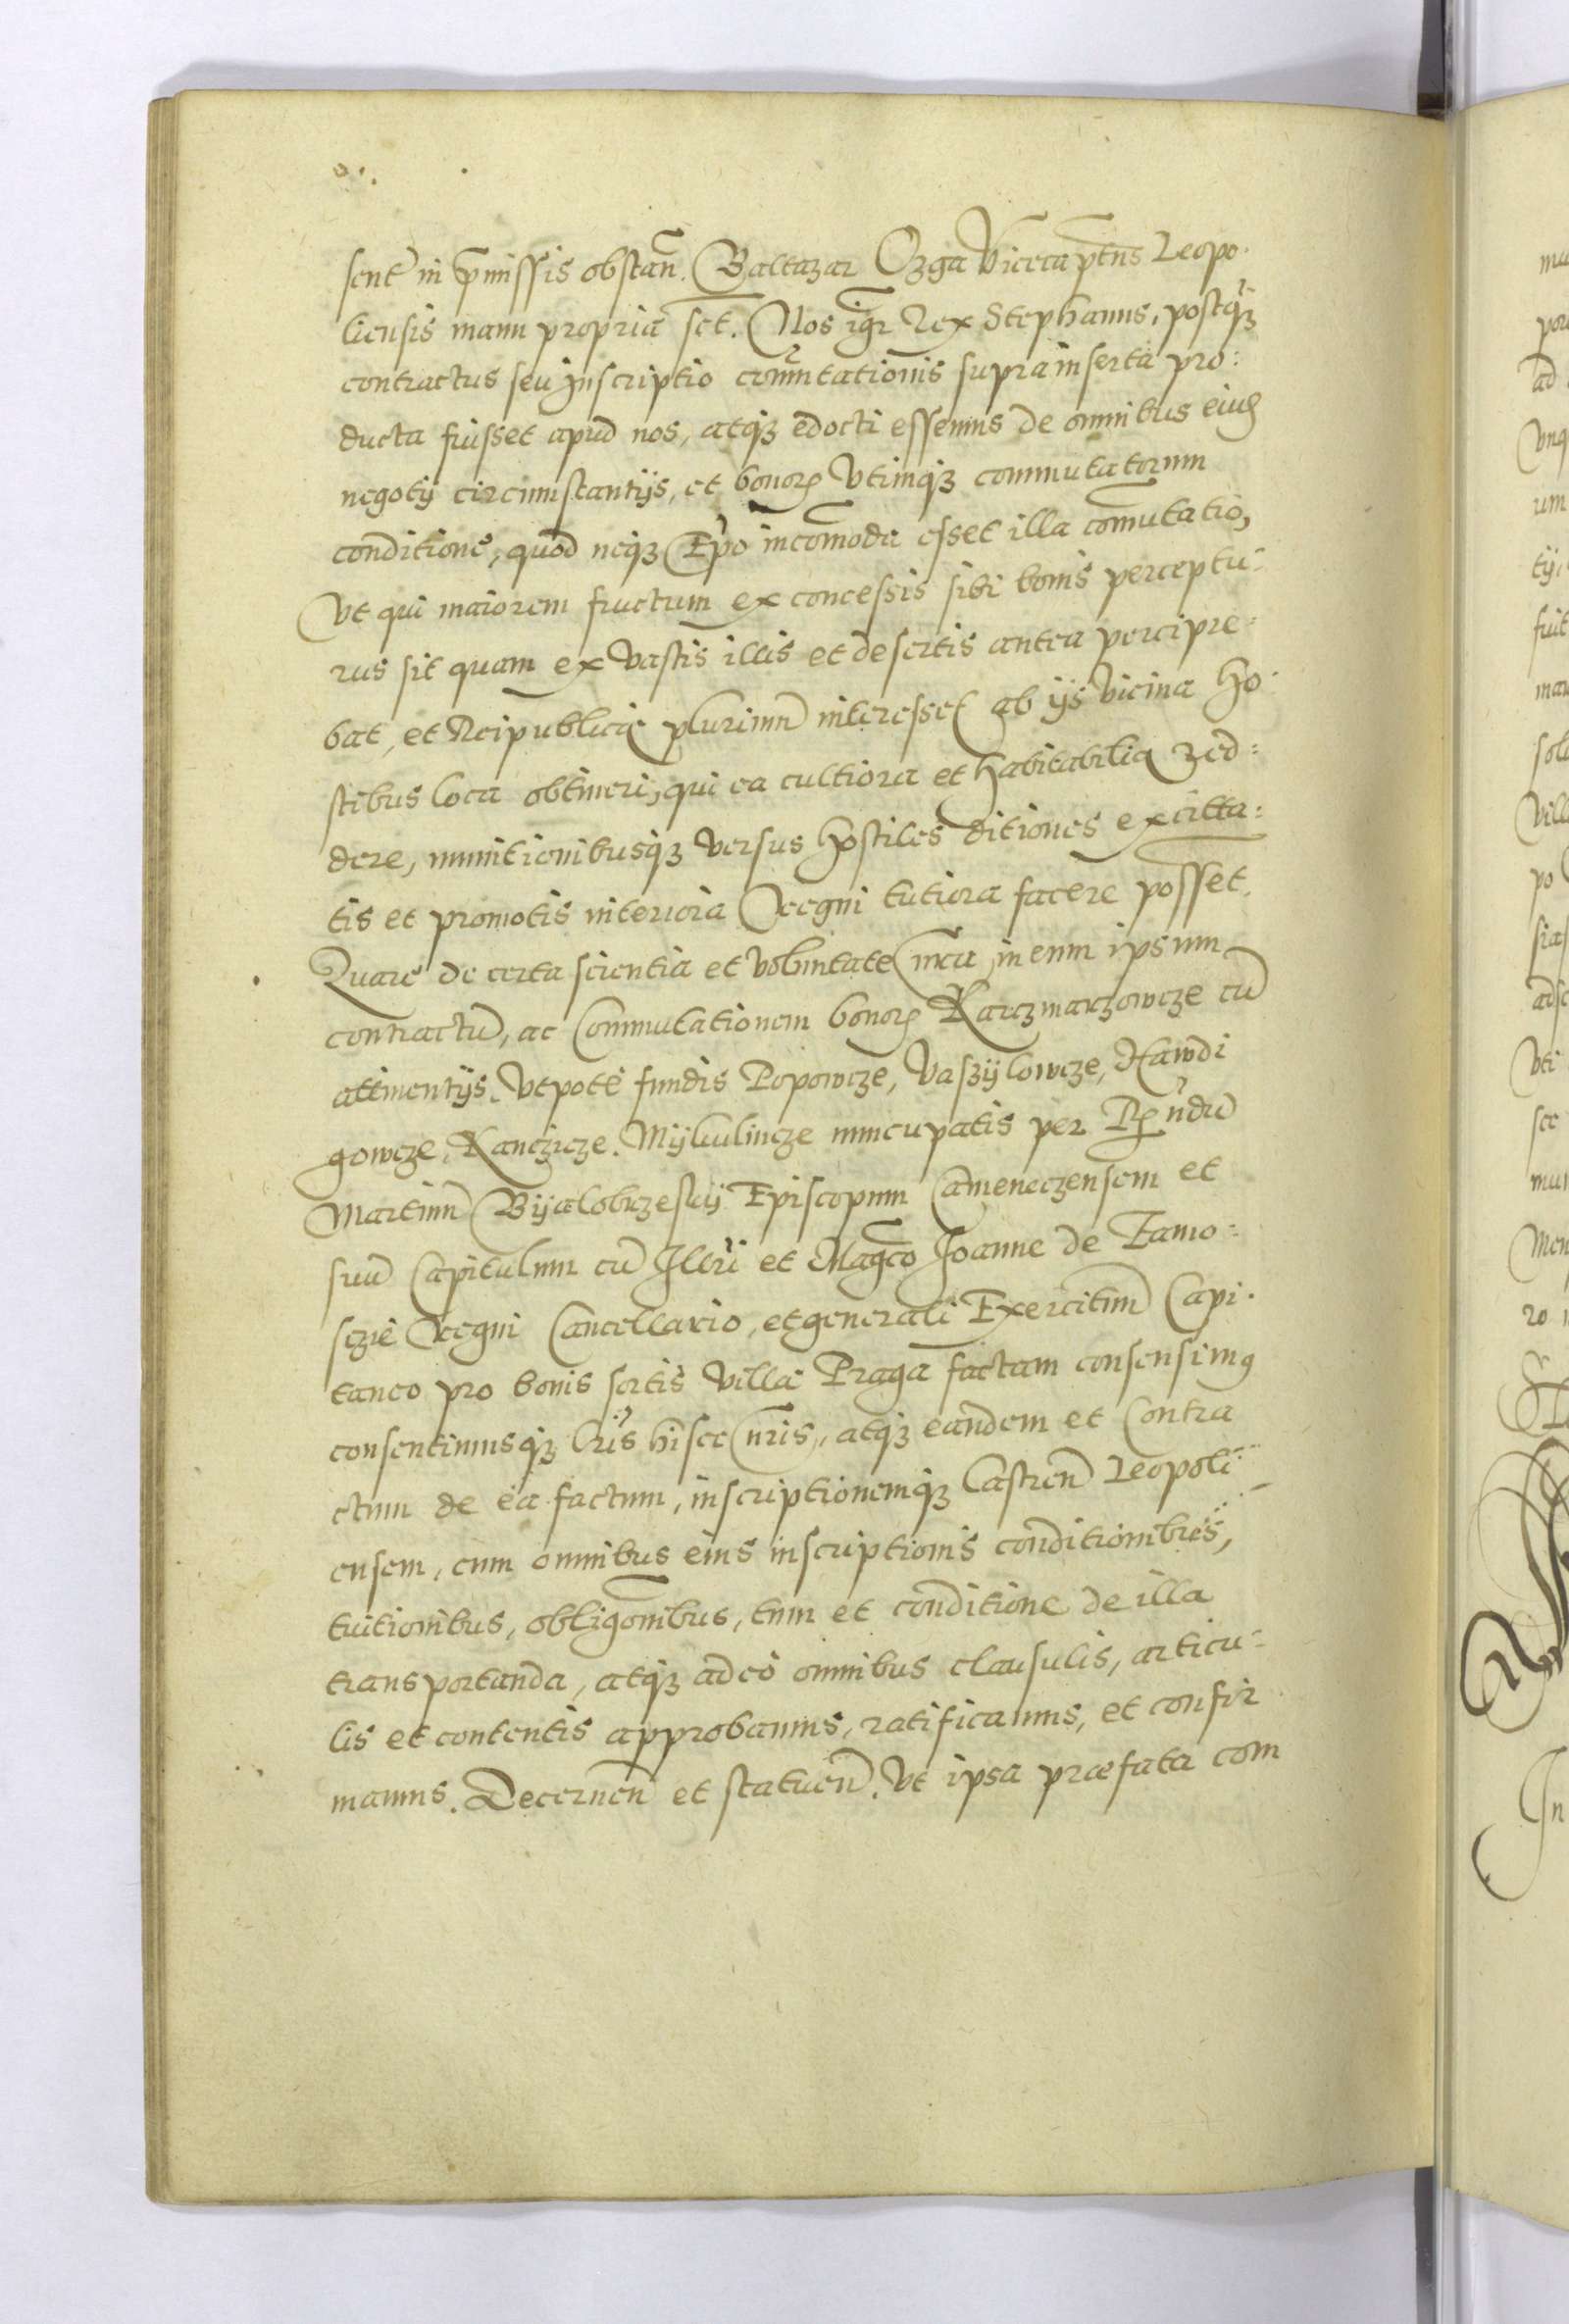 sent in p̄missis obstan̄. Baltazar Ozga Vicecaptn̄s Leopo.
liensis manu propria sct. Nos igr̄ Rex Stephanus, postq̄ꝫ
contractus seu Inscriptio com̄utationis suprainserta pro:
ducta fuisset apud nos, atqꝫ edocti essemus de omnibus eiusꝫ
negotij circumstantijs, et bonorꝫ Vtrinqꝫ commutatorum
conditione, quod neqꝫ Ep̄o incom̄oda esset illa com̄utatio,
Vt qui maiorem fructum ex concessis sibi bonis perceptu:
rus sit quam ex vastis illis et desertis antea percipie:
bat, et Reipublicę plurimū interesset ab ijs vicina Ho:
stibus loca obtineri, qui ea cultiora et habitabilia red:
dere, munitionibusqꝫ versus hostiles ditiones excitta:
tis et promotis interiora Regni tutiora facere posset.
Quare de certa scientia et voluntate nr̄a, in eum ipsum
contractū, ac Commutationem bonorꝫ Karczmarzowcze cū
attinentijs. Vtpote fundis Popowcze, Vaszÿlowcze, Hawdi
gowcze, Kanczicze. Mÿkulincze nuncupatis per Rn̄dū
Martinū Bÿalobrzeskÿ Episcopum Cameneczensem et
suū Capitulum cū Illri et Mag̅co Joanne de Zamo:
sczie Regni Cancellario, et generali Exercituū Capi.
taneo pro bonis sortis Villa Praga factam consensimꝰ
consentimusqꝫ lr̄is hisce nr̄is, atqꝫ eandem et Contra
ctum de ea factum, inscriptionemqꝫ Castren̄ Leopoli:
ensem, cum omnibus eius inscriptionis conditionibus,
tuitionibus, obligōnibus, tum et conditione de illa
transportanda, atqꝫ adeo omnibus clausulis, articu:
lis et contentis approbamus, ratificamus, et confir
mamus. Decernen̄ et statuen̄. Vt ipsa præfata com